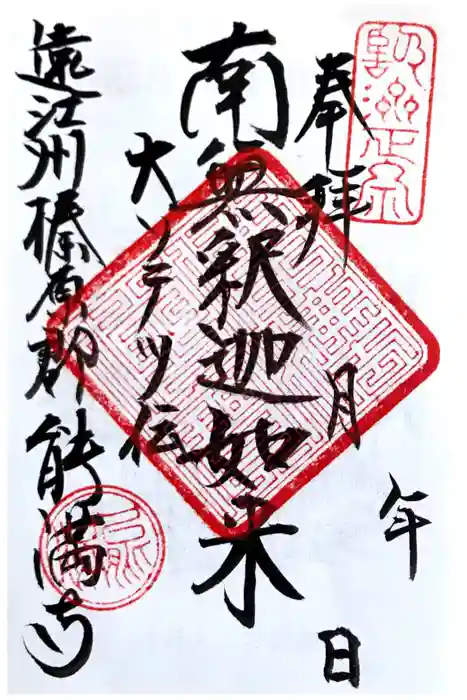 奉拝
年
月
日
南無釈迦如来
大ソテツ伝
遠江州榛原郡能満寺